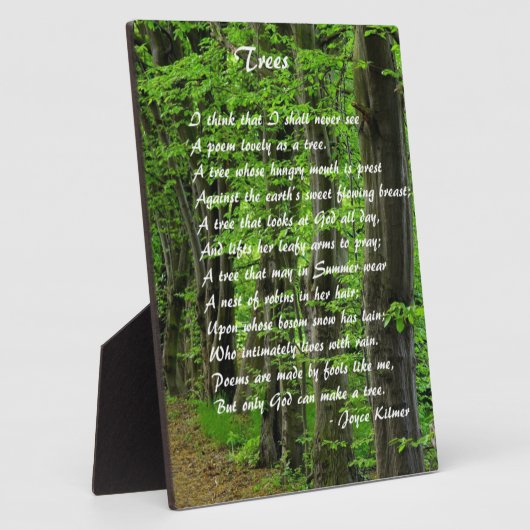 Trees
I think that I shall never see
A poem lovely as a tree.
A tree whose hungry mouth is prest
Against the earth's sweet flowing breast;
A tree that looks at God all day,
And lifts her leafy arms to pray;
A tree that may in Summer wear
A nest of robins in her hair;
Upon whose bosom snow has lain;
Who intimately lives with rain.
Poems are made by fools like me,
But only God can make a tree.
- Joyce Kilmer